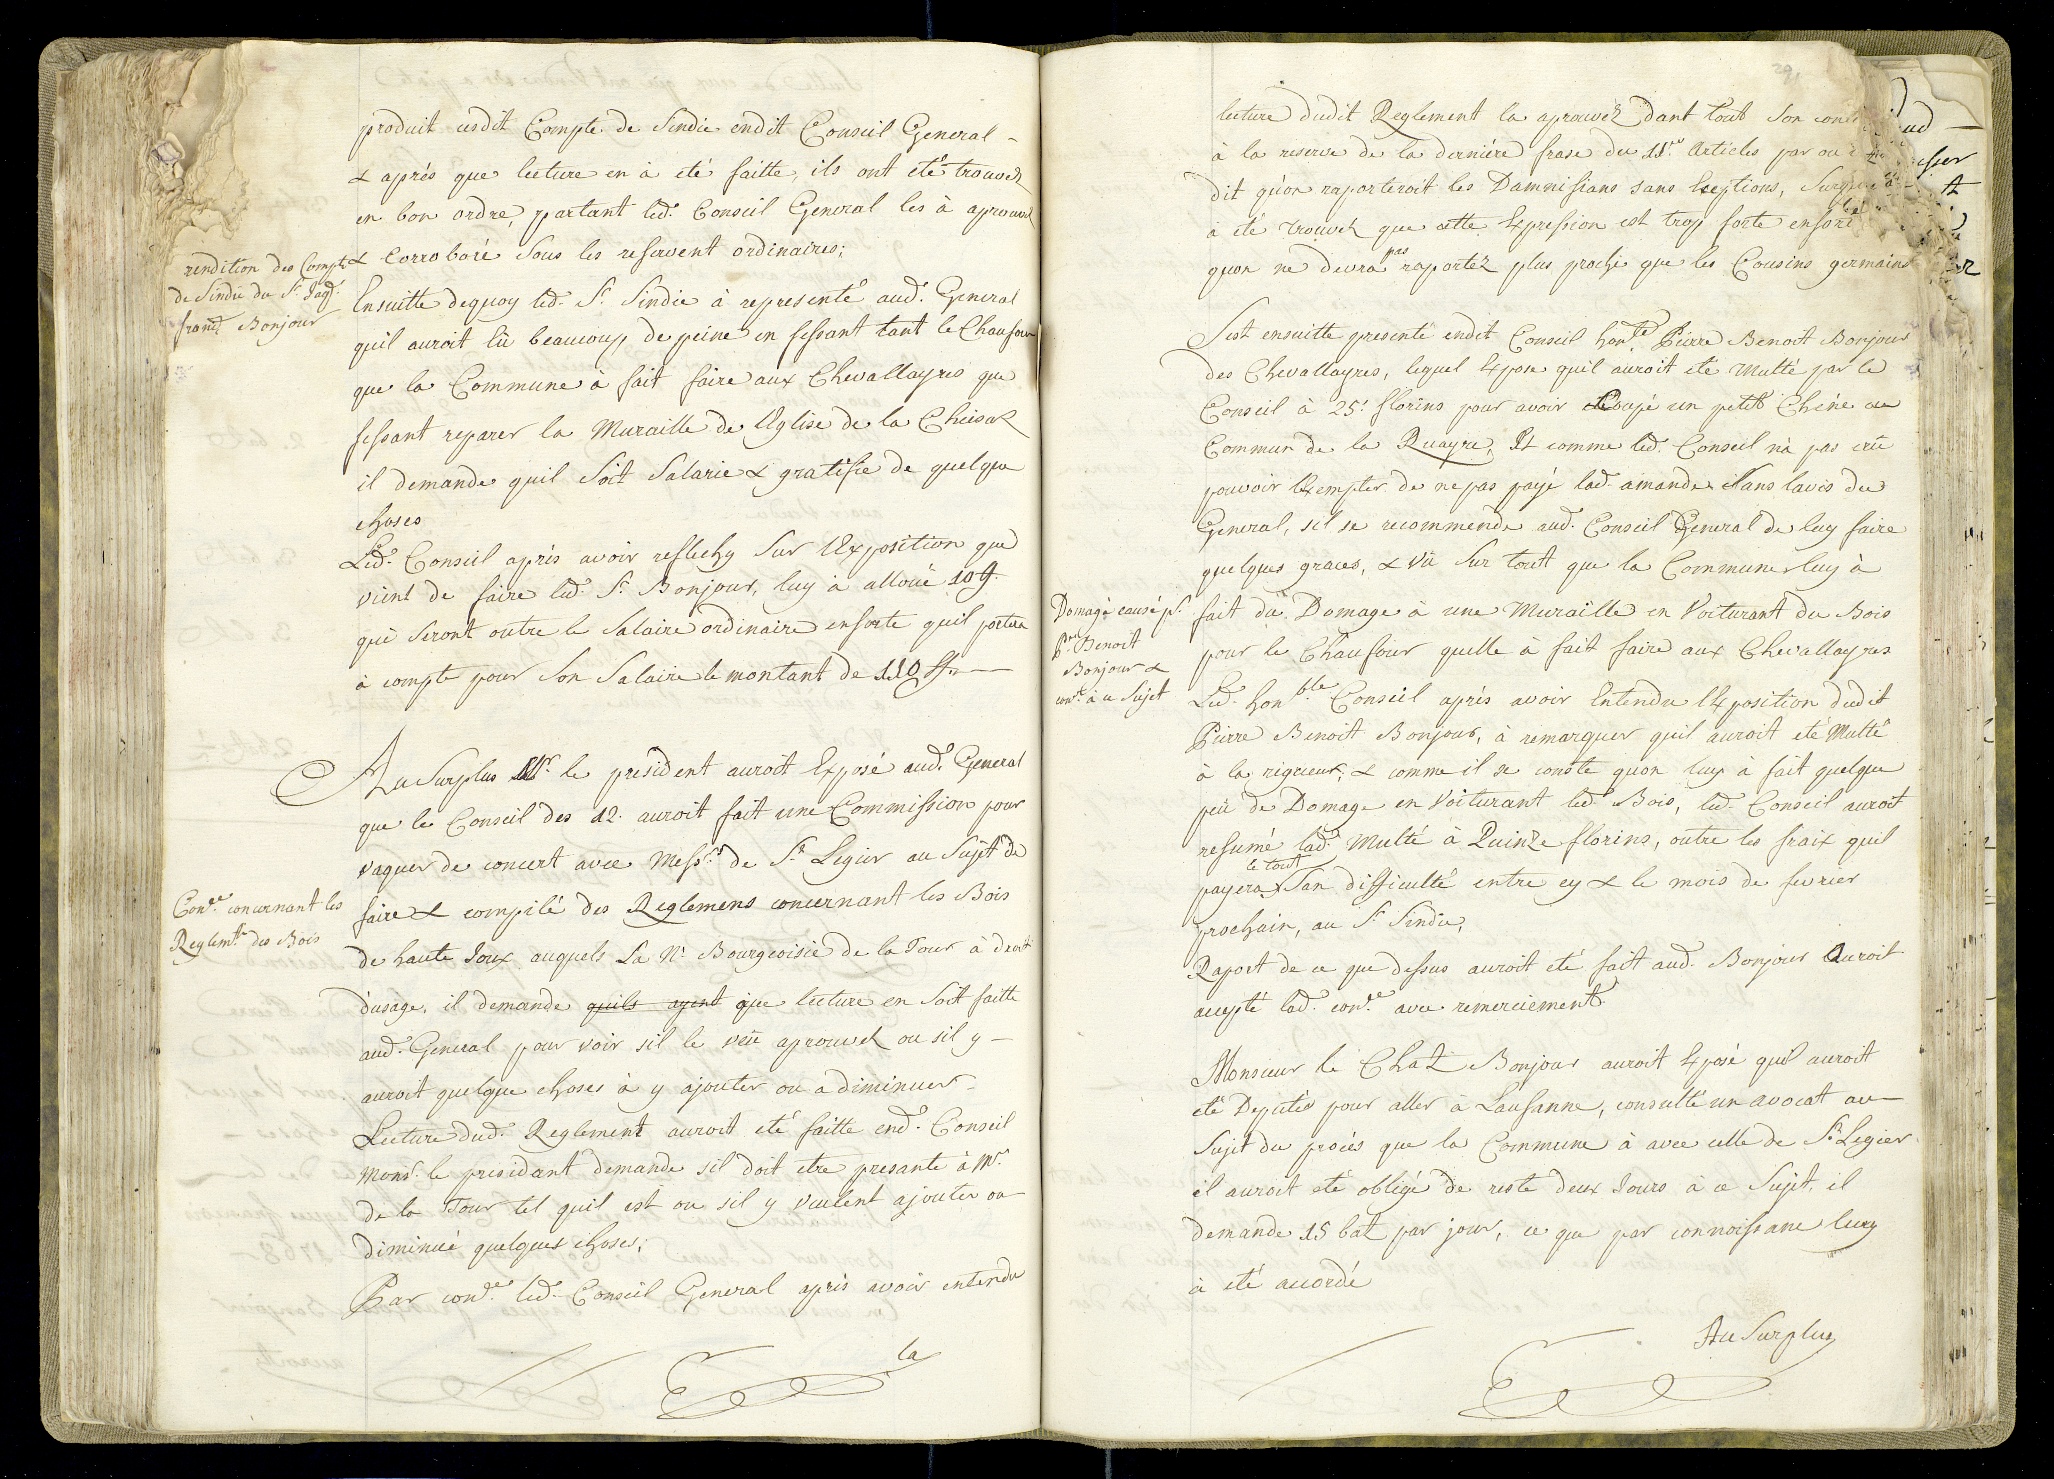 produit cesdit Compte de Sindic endit Conseil General -
& aprés que lecture en à eté faitte, ils ont eté trouvez
en bon ordre, partant led. Conseil General les à aprouvé
& Corroboré Sous les reservent ordinaires;
rendition des Compte
de Sindic du Sr. Jaq.
franç. Bonjour
Ensuitte dequoy led. Sr. Sindic à representé aud. General
quil auroit Eû beaucoup de peine en fessant tant le Chaufour
que la Commune à fait faire aux Chevallayres que
fessant reparer la Muraille de l'Eglise de la Chiesaz
il demande quil Soit Salarie & gratifie de quelque
choses
Led. Conseil aprés avoir reflechy Sur l'Exposition que
vient de faire led. Sr. Bonjour, luy à alloué 10 ff.
qui Seront outre le Salaire ordinaire ensorte quil portera
à compte pour Son Salaire le montant de 110 ff.
Au Surplus Mr. le president auroit Exposé aud. General
que le Conseil des 12. auroit fait une Commission pour
vaquer de concert avec Messrs. de St. Legier au Sujet de
faire & compilé des Reglemens concernant les Bois
de haute Joux auquels La N. Bourgeoisie de la Tour à droit
Conce. concernant les
Reglemts. des Bois
d'usage, il demande quils ayent que lecture en Soit faitte
aud. General pour voir sil le veut aprouvez ou sil y -
auroit quelque choses à y ajouter ou a diminuer -
Lecture dud. Reglement auroit eté faitte end. Conseil
Monsr. le presidant demande sil doit etre presante à Mr.
de la Tour tel quil est ou sil y veulent ajouter ou
diminué quelques choses;
Par conce. led. Conseil General aprés avoir entendu
la
lecture dudit Reglement la aprouvéz dant tout Son
à la reserve de la derniére frase du 11me. Articles par ou
dit qu'on raporteroit les Damnisians sans Exeptions,
à eté trouvez que cette Expression est trop forte ensorte
quon ne devra pas raportéz plus proche que les Cousins germains
Sest ensuitte presenté endit Conseil honte. Pierre Benoit Bonjour
des Chevallayres, lequel Expose quil auroit eté Multé par le
Conseil à 25. florins pour avoir Coupé un petit Chéne au
Commun de la Quayre, Et comme led. Conseil n'à pas crû
pouvoir l'Exempter de ne pas payé lad. amande Sans lavis du
General, sil se recommende aud. Conseil General de luy faire
quelques graces, & vû Sur tout que la Commune luy à
fait du Domage à une Muraille en Voiturant du Bois
pour le Chaufour quelle à fait faire aux Chevallayres
Domage causé pr.
Prre. Benoit
Bonjour &
conce. à ce Sujet
Led. honble. Conseil aprés avoir Entendu l'Exposition dudit
Pierre Benoit Bonjour, à remarquer quil auroit eté Multé
à la rigueur; & comme il se conste quon luy à fait quelque
peu de Domage en Voiturant led. Bois, led. Conseil auroit
resumé lad. Multe à Quinze florins, outre les fraix quil
payera le tout San difficulté entre cy & le mois de fevrier
prochain, au Sr. Sindic,
Raport de ce que dessus auroit eté fait aud. Bonjour Auroit
accepté lad. conce. avec remerciement
Monsieur le Chat. Bonjour auroit Exposé quil auroit
eté Deputés pour aller à Lausanne, consulté un avocat au
Sujet du procés que la Commune à avec celle de St. Legier
il auroit eté obligé de reste deux Jours à ce Sujet, il
demande 15 batz par jour, ce que par connoissance luy
à eté accordé
Au Surplus